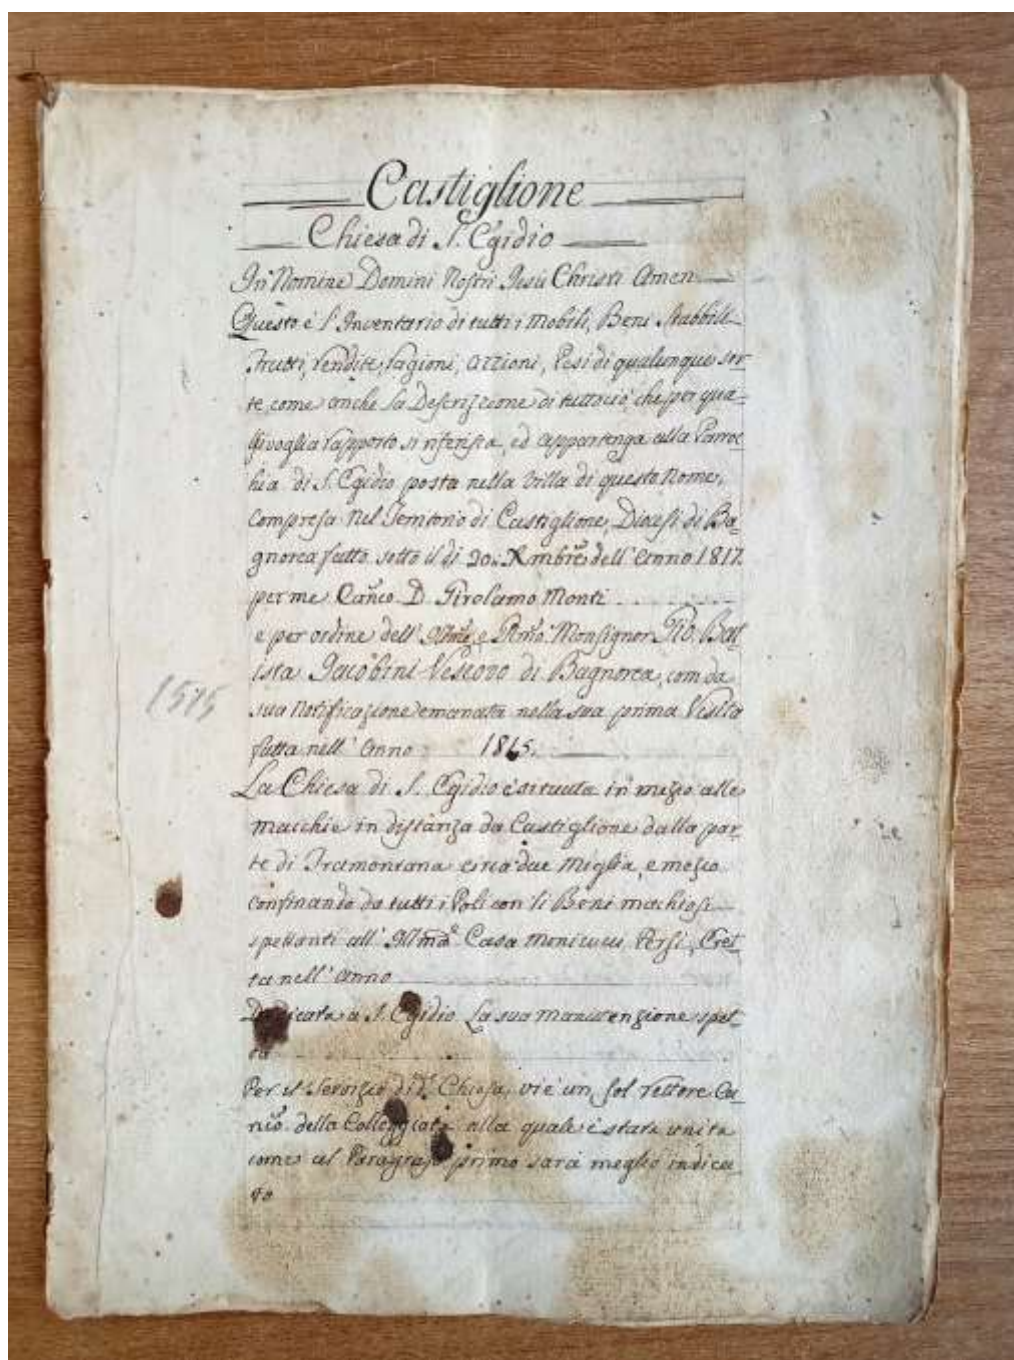 Castiglione
Chiesa di S. Egidio
In Nomine Domini Nostri Jesu Christi Amen
Questo è l'Inventario di tutti i Mobili, Beni Stabbili
Frutti, rendite, ragioni, azzioni, Pesi di qualunque sor
te, come anche la Descrizzione di tuttociò, che per qua-
lsivoglia rapporto si riferisca, ed appartenga alla Parroc
hia di S. Egidio posta nella Villa di questo Nome,
compresa nel Territorio di Castiglione, Diocesi di Ba
gnorea fatto sotto il dì 20. Xmbre dell'Anno 1817.
per me Canco. D. Girolamo Monti
e per ordine dell' Illmo, e Rmo Monsignor Gio. Bat
ista Jacobini Vescovo di Bagnorea, com da
sua Notificazione emanata nella sua prima Visita
fatta nell'Anno 1815.
1515
La Chiesa di S. Egidio è situata in mezzo alle
macchie in distanza da Castiglione dalla par
te di Tramontana circa due Miglia, e mezzo
confinando da tutti i Poli con li Beni macchiosi
spettanti all' Illma Casa Persi, Eret
ta nell'Anno
Dedicata a S. Egidio. La sua manutenzione spet
ta
Per il Servizio di da Chiesa, vi è un sol rettore Ca
nico della Collegiata alla quale è stata unita
come al Paragrafo primo sarà meglio indica
to